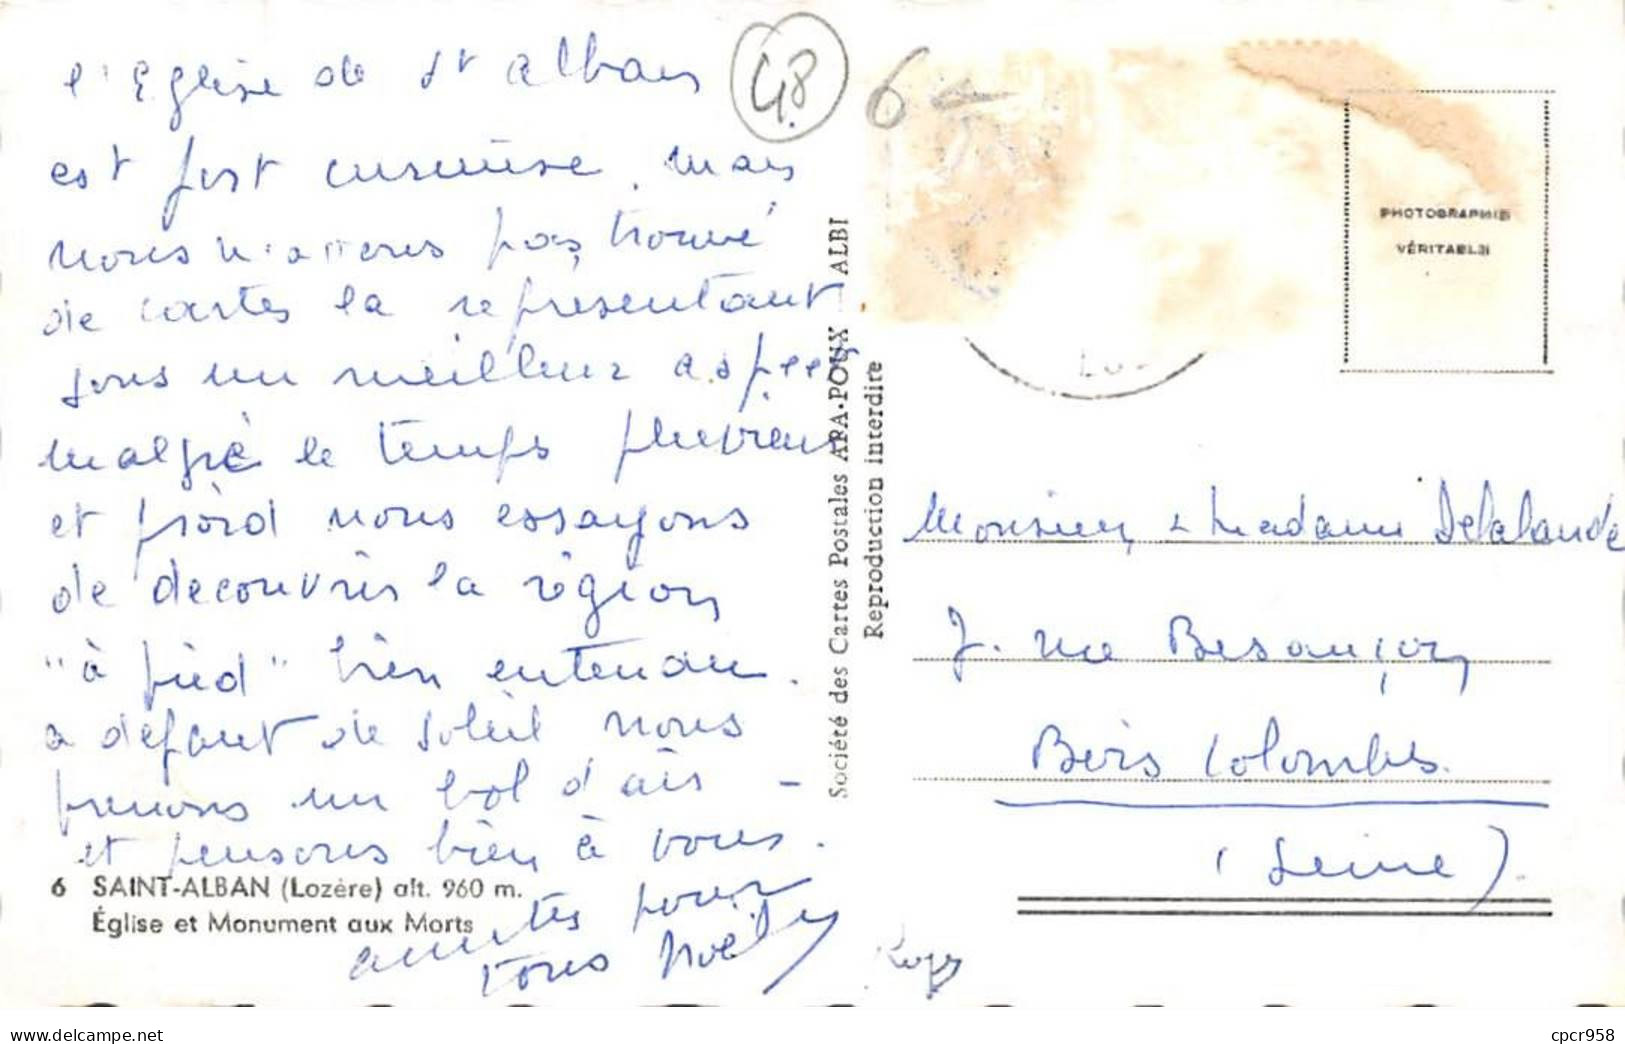 l'Eglise de St Alban
est fort curieuse, mais
nous n'avons pas trouvé
de cartes la représentant
sous un meilleur aspect
malgré le temps pluvieux
et froid nous essayons
de decouvrir la région
"à pied" bien entendu.
a defaut de soleil nous
prenons un bol d'air -
et pensons bien à vous.
amitiés pour
tous
6 SAINT-ALBAN (Lozère) alt. 960 m.
Église et Monument aux Morts
48
6
Société des Cartes Postales APA-POUX ALBI
Reproduction interdite
PHOTOGRAPHIE
VÉRITABLE
Monsieur & Madame Delalande
7. rue Besançon
Bois Colombes.
(Seine).
cpcr958